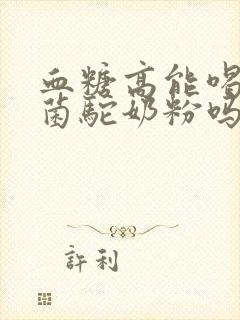 血糖高能喝
菌駝奶粉吗
許利